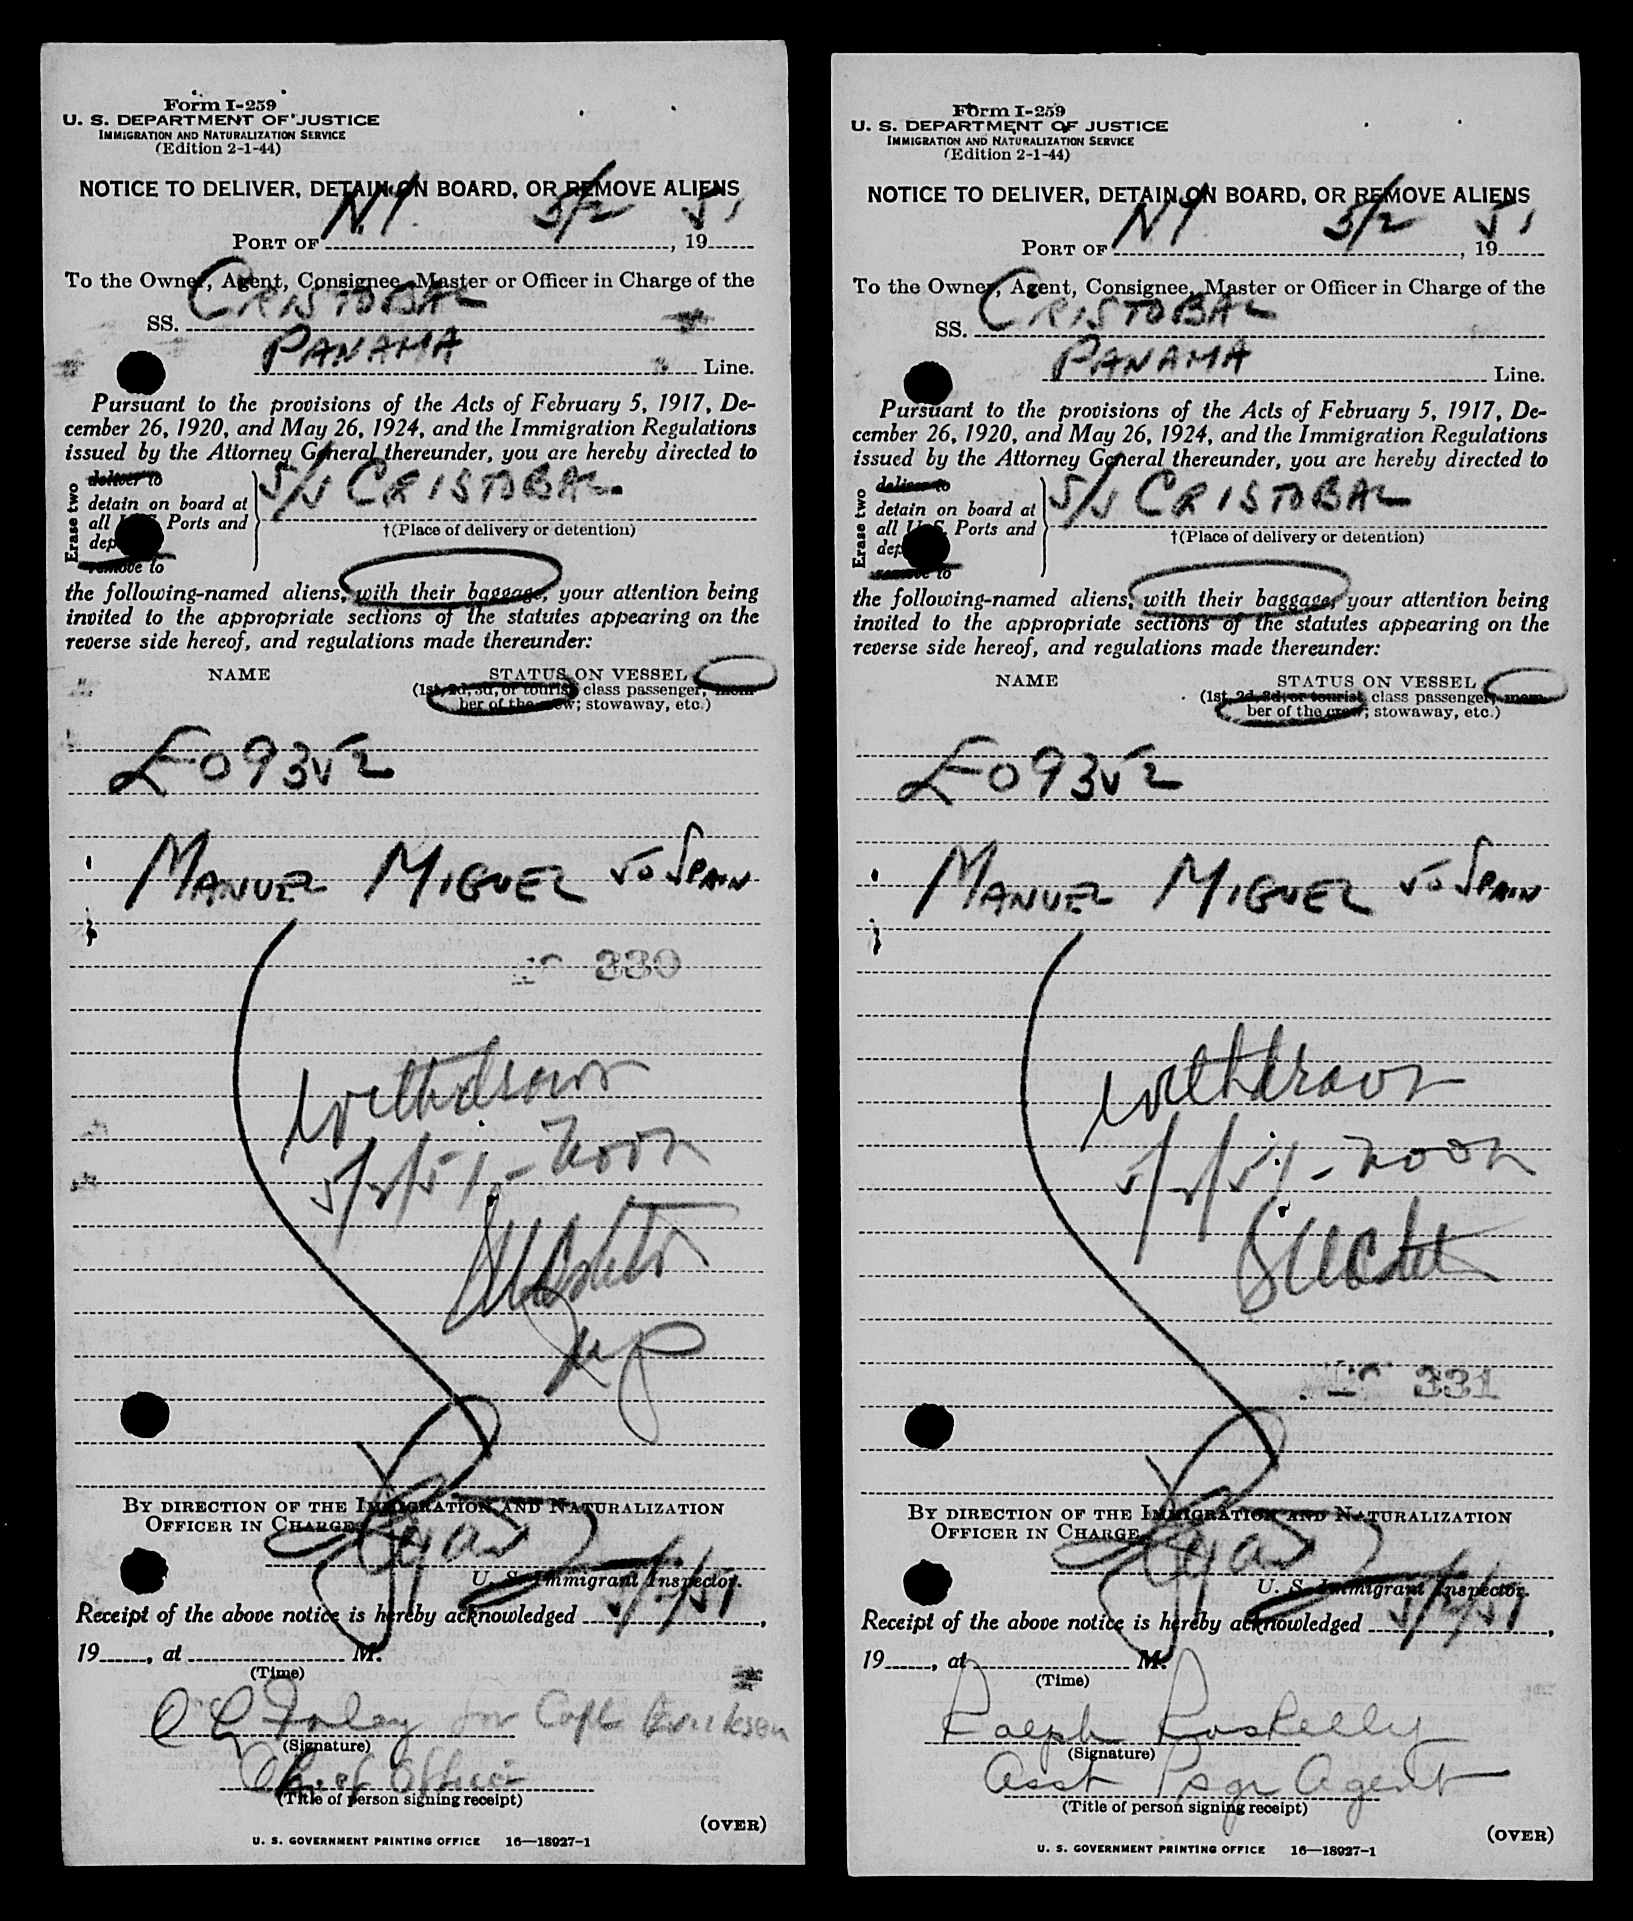 Form I-259
U. S. DEPARTMENT OF JUSTICE
IMMIGRATION AND NATURALIZATION SERVICE
(Edition 2-1-44)
NOTICE TO DELIVER, DETAIN ON BOARD, OR REMOVE ALIENS
PORT OF N.Y. 5/2, 19 51
To the Owner, Agent, Consignee, Master or Officer in Charge of the
SS. CRISTOBAL
PANAMA Line.
Pursuant to the provisions of the Acts of February 5, 1917, De-
cember 26, 1920, and May 26, 1924, and the Immigration Regulations
issued by the Attorney General thereunder, you are hereby directed to
Erase two
deliver to
detain on board at
all U.S. Ports and
dep
remove to
S/S CRISTOBAL
†(Place of delivery or detention)
the following-named aliens, with their baggage, your attention being
invited to the appropriate sections of the statutes appearing on the
reverse side hereof, and regulations made thereunder:
NAME STATUS ON VESSEL
(1st, 2d, 3d, or tourist class passenger, mem-
ber of the crew; stowaway, etc.)
09352
MANUEL MIGUEL 50 SPAIN
330
Withdrawn
5/2/51 - Noon
BY DIRECTION OF THE IMMIGRATION AND NATURALIZATION
OFFICER IN CHARGE
Ryan
U. S. Immigrant Inspector.
Receipt of the above notice is hereby acknowledged 5/2/51,
19, at M.
(Time)
Foley for Capt Ericksen
(Signature)
Chief Officer
(Title of person signing receipt)
(OVER)
U. S. GOVERNMENT PRINTING OFFICE 16—18927-1
Form I-259
U. S. DEPARTMENT OF JUSTICE
IMMIGRATION AND NATURALIZATION SERVICE
(Edition 2-1-44)
NOTICE TO DELIVER, DETAIN ON BOARD, OR REMOVE ALIENS
PORT OF NY 5/2, 19 51
To the Owner, Agent, Consignee, Master or Officer in Charge of the
SS. CRISTOBAL
PANAMA Line.
Pursuant to the provisions of the Acts of February 5, 1917, De-
cember 26, 1920, and May 26, 1924, and the Immigration Regulations
issued by the Attorney General thereunder, you are hereby directed to
Erase two
deliver to
detain on board at
all U.S. Ports and
dep
remove to
S/S CRISTOBAL
†(Place of delivery or detention)
the following-named aliens, with their baggage, your attention being
invited to the appropriate sections of the statutes appearing on the
reverse side hereof, and regulations made thereunder:
NAME STATUS ON VESSEL
(1st, 2d, 3d, or tourist class passenger, mem-
ber of the crew; stowaway, etc.)
09352
MANUEL MIGUEL 50 SPAIN
Withdrawn
5/2/51 - Noon
331
BY DIRECTION OF THE IMMIGRATION AND NATURALIZATION
OFFICER IN CHARGE
Ryan
U. S. Immigrant Inspector.
Receipt of the above notice is hereby acknowledged 5/2/51,
19, at M.
(Time)
Ralph Roskelly
(Signature)
Asst Psgr Agent
(Title of person signing receipt)
(OVER)
U. S. GOVERNMENT PRINTING OFFICE 16—18927-1